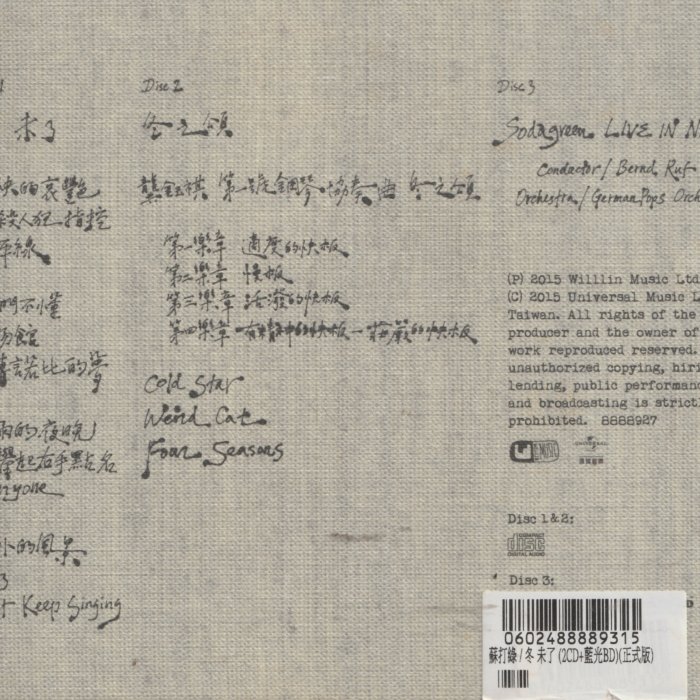 未了
的哀艷
殺人犯 指控
平線
們不懂
場館
諾比的夢
雨的夜晚
舉起右手點名
everyone
外的風景
Keep Singing
Disc 2
冬之頌
龔鈺祺 第一號鋼琴協奏曲 冬之頌
第一樂章 適度的快板
第二樂章 慢板
第三樂章 活潑的快板
第四樂章 有精神的快板-莊嚴的快板
Cold Star
Weird Cat
Four Seasons
Disc 3
Sodagreen LIVE IN N
Conductor/ Bernd Ruf
Orchestra/ German Pops Orch
(P) 2015 Willlin Music Ltd
(C) 2015 Universal Music L
Taiwan. All rights of the
producer and the owner of
work reproduced reserved.
unauthorized copying, hiri
lending, public performanc
and broadcasting is strictl
prohibited. 8888927
UNIVERSAL
環球音樂
Disc 1&2:
COMPACT
disc
DIGITAL AUDIO
Disc 3:
0602488889315
蘇打綠 / 冬 未了 (2CD+藍光BD)(正式版)